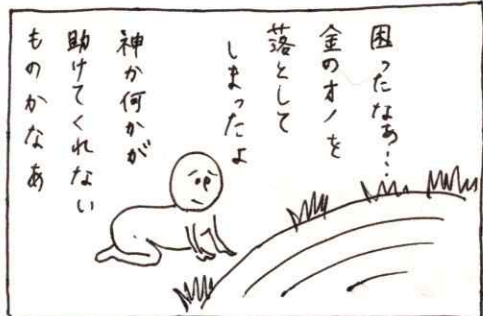 困ったなあ…
金のオノを
落として
しまったよ
神か何かが
助けてくれない
ものかなあ